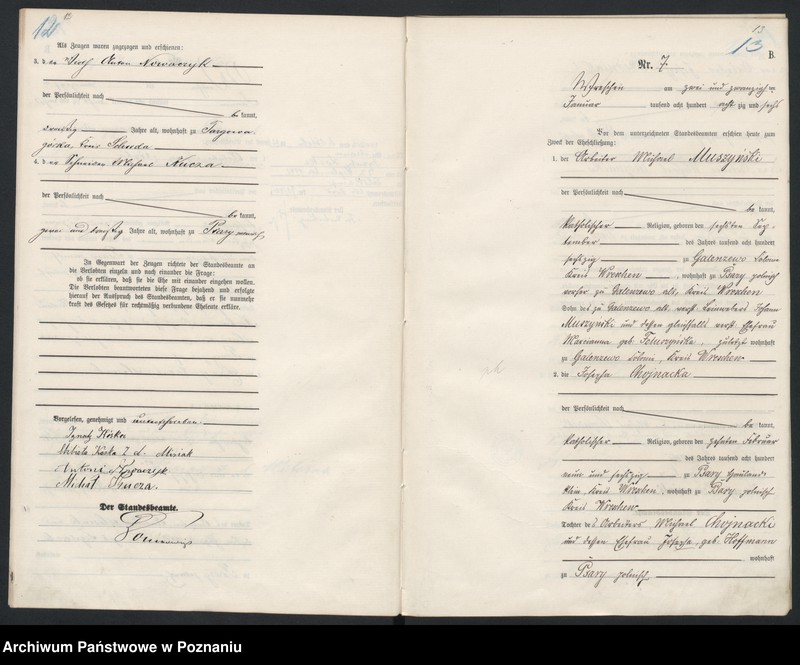 12
Als Zeugen waren zugezogen und erschienen:
3. der Anton Nowaczyk
der Persönlichkeit nach
be kannt,
dreißig Jahre alt, wohnhaft zu Targowa
górka, Kreis Schroda
4. der Michael Kucza
der Persönlichkeit nach
be kannt,
zwei und dreißig Jahre alt, wohnhaft zu Psary
In Gegenwart der Zeugen richtete der Standesbeamte an
die Verlobten einzeln und nach einander die Frage:
ob sie erklären, daß sie die Ehe mit einander eingehen wollen.
Die Verlobten beantworteten diese Frage bejahend und erfolgte
hierauf der Ausspruch des Standesbeamten, daß er sie nunmehr
kraft des Gesetzes für rechtmäßig verbundene Eheleute erkläre.
Vorgelesen, genehmigt und unterschrieben.
Ignatz
Misiak
Antoni Nowaczyk
Michał Kucza.
Der Standesbeamte.
13
13
B.
Nr. 7
Wreschen am zwei und zwanzigsten
Januar tausend acht hundert acht zig und sechs
Vor dem unterzeichneten Standesbeamten erschien heute zum
Zweck der Eheschließung:
1. der Arbeiter Michael Muszyński
der Persönlichkeit nach
be kannt,
katholischer Religion, geboren den sechsten Sep
tember des Jahres tausend acht hundert
sechszig zu Galenzewo
Kreis Wreschen, wohnhaft zu Psary polnisch
vorher zu Galenzewo, Kreis Wreschen
Sohn des zu Galenzewo verst. Johann
Muszyński und dessen gleichfalls verst. Ehefrau
Marcianna geb., zuletzt wohnhaft
zu Galenzewo, Kreis Wreschen
2. die Josepha Chojnacka
der Persönlichkeit nach
be kannt,
katholischer Religion, geboren den zehnten Februar
des Jahres tausend acht hundert
neun und sechszig zu Psary Hauland
Kreis Wreschen, wohnhaft zu Psary polnisch
Kreis Wreschen
Tochter des Arbeiters Michael Chojnacki
und dessen Ehefrau Josepha, geb. Hoffmann
wohnhaft
zu Psary polnisch
Archiwum Państwowe w Poznaniu